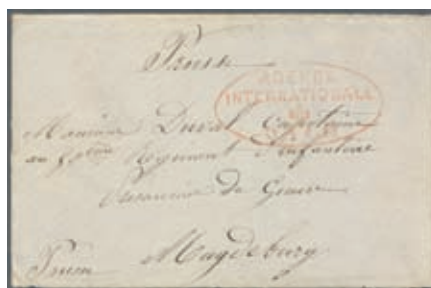 Prusse
AGENCE
INTERNATIONALE
Monsieur Duval Capitaine
au Regiment d'infanterie
Prisonnier de Guerre
Magdeburg
Prusse